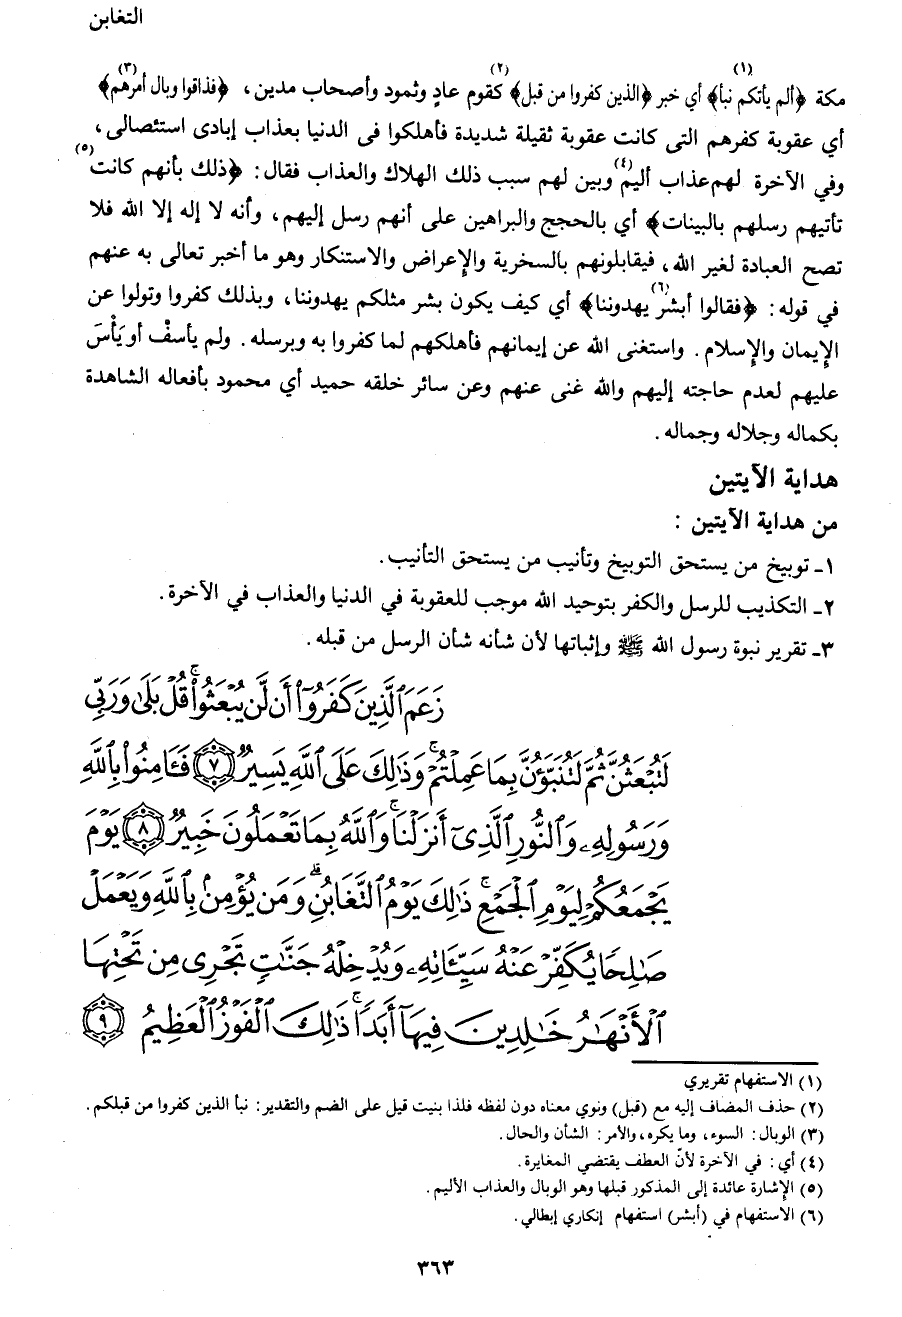 التغابن
مكة ﴿ألم يأتكم نبأ(١)﴾ أي خبر ﴿الذين كفروا من قبل(٢)﴾ كقوم عادٍ وثمود وأصحاب مدين، ﴿فذاقوا وبال أمرهم(٣)﴾
أي عقوبة كفرهم التى كانت عقوبة ثقيلة شديدة فأهلكوا فى الدنيا بعذاب إبادى استئصالى،
وفي الآخرة لهم عذاب أليم(٤) وبين لهم سبب ذلك الهلاك والعذاب فقال: ﴿ذلك بأنهم كانت(٥)
تأتيهم رسلهم بالبينات﴾ أي بالحجج والبراهين على أنهم رسل إليهم، وأنه لا إله إلا الله فلا
تصح العبادة لغير الله، فيقابلونهم بالسخرية والإعراض والاستنكار وهو ما أخبر تعالى به عنهم
في قوله: ﴿فقالوا أبشر(٦) يهدوننا﴾ أي كيف يكون بشر مثلكم يهدوننا، وبذلك كفروا وتولوا عن
الإيمان والإسلام. واستغنى الله عن إيمانهم فأهلكهم لما كفروا به وبرسله. ولم يأسفْ أو يَأْسَ
عليهم لعدم حاجته إليهم والله غنى عنهم وعن سائر خلقه حميد أي محمود بأفعاله الشاهدة
بكماله وجلاله وجماله.
هداية الآيتين
من هداية الآيتين:
١ـ توبيخ من يستحق التوبيخ وتأنيب من يستحق التأنيب.
٢ـ التكذيب للرسل والكفر بتوحيد الله موجب للعقوبة في الدنيا والعذاب في الآخرة.
٣ـ تقرير نبوة رسول الله ﷺ وإثباتها لأن شأنه شأن الرسل من قبله.
زَعَمَ ٱلَّذِينَ كَفَرُوٓا۟ أَن لَّن يُبْعَثُوا۟ ۚ قُلْ بَلَىٰ وَرَبِّى
لَتُبْعَثُنَّ ثُمَّ لَتُنَبَّؤُنَّ بِمَا عَمِلْتُمْ ۚ وَذَٰلِكَ عَلَى ٱللَّهِ يَسِيرٌ ۝٧ فَـَٔامِنُوا۟ بِٱللَّهِ
وَرَسُولِهِۦ وَٱلنُّورِ ٱلَّذِىٓ أَنزَلْنَا ۚ وَٱللَّهُ بِمَا تَعْمَلُونَ خَبِيرٌ ۝٨ يَوْمَ
يَجْمَعُكُمْ لِيَوْمِ ٱلْجَمْعِ ۖ ذَٰلِكَ يَوْمُ ٱلتَّغَابُنِ ۗ وَمَن يُؤْمِنۢ بِٱللَّهِ وَيَعْمَلْ
صَـٰلِحًا يُكَفِّرْ عَنْهُ سَيِّـَٔاتِهِۦ وَيُدْخِلْهُ جَنَّـٰتٍ تَجْرِى مِن تَحْتِهَا
ٱلْأَنْهَـٰرُ خَـٰلِدِينَ فِيهَآ أَبَدًا ۚ ذَٰلِكَ ٱلْفَوْزُ ٱلْعَظِيمُ ۝٩
(١) الاستفهام تقريري
(٢) حذف المضاف إليه مع (قبل) ونوي معناه دون لفظه فلذا بنيت قبل على الضم والتقدير: نبأ الذين كفروا من قبلكم.
(٣) الوبال: السوء، وما يكره، والأمر: الشأن والحال.
(٤) أي: في الآخرة لأنّ العطف يقتضي المغايرة.
(٥) الإشارة عائدة إلى المذكور قبلها وهو الوبال والعذاب الأليم.
(٦) الاستفهام في (أبشر) استفهام إنكاري إبطالي.
٣٦٣